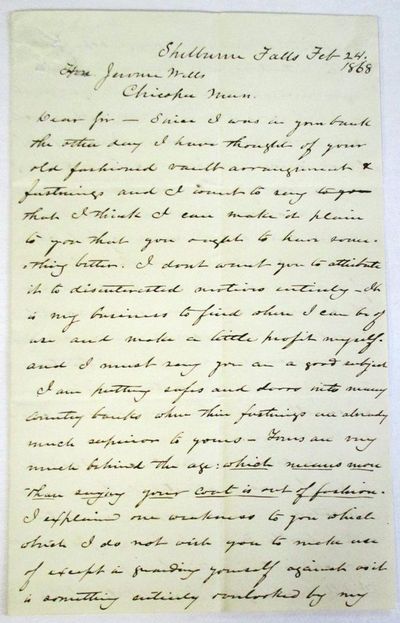 Shelburne Falls Feb 24,
1868
Hon Jerome Wells
Chicopee Mass.
Dear Sir — Since I was in your bank
the other day I have thought of your
old fashioned vault arrangement &
fastnings and I want to say to yo
that I think I can make it plain
to you that you ought to have some-
thing better. I dont want you to attribute
it to disenterested motives entirely — It
is my business to find where I can be of
use and make a little profit myself.
and I must say you are a good subject
I am putting safes and doors into many
country banks where their fastnings are already
much superior to yours — Yours are very
much behind the age: which means more
than saying your coat is out of fashion.
I explained one weakness to you which
which I do not wish you to make use
of except in guarding yourself against as it
is something entirely overlooked by my